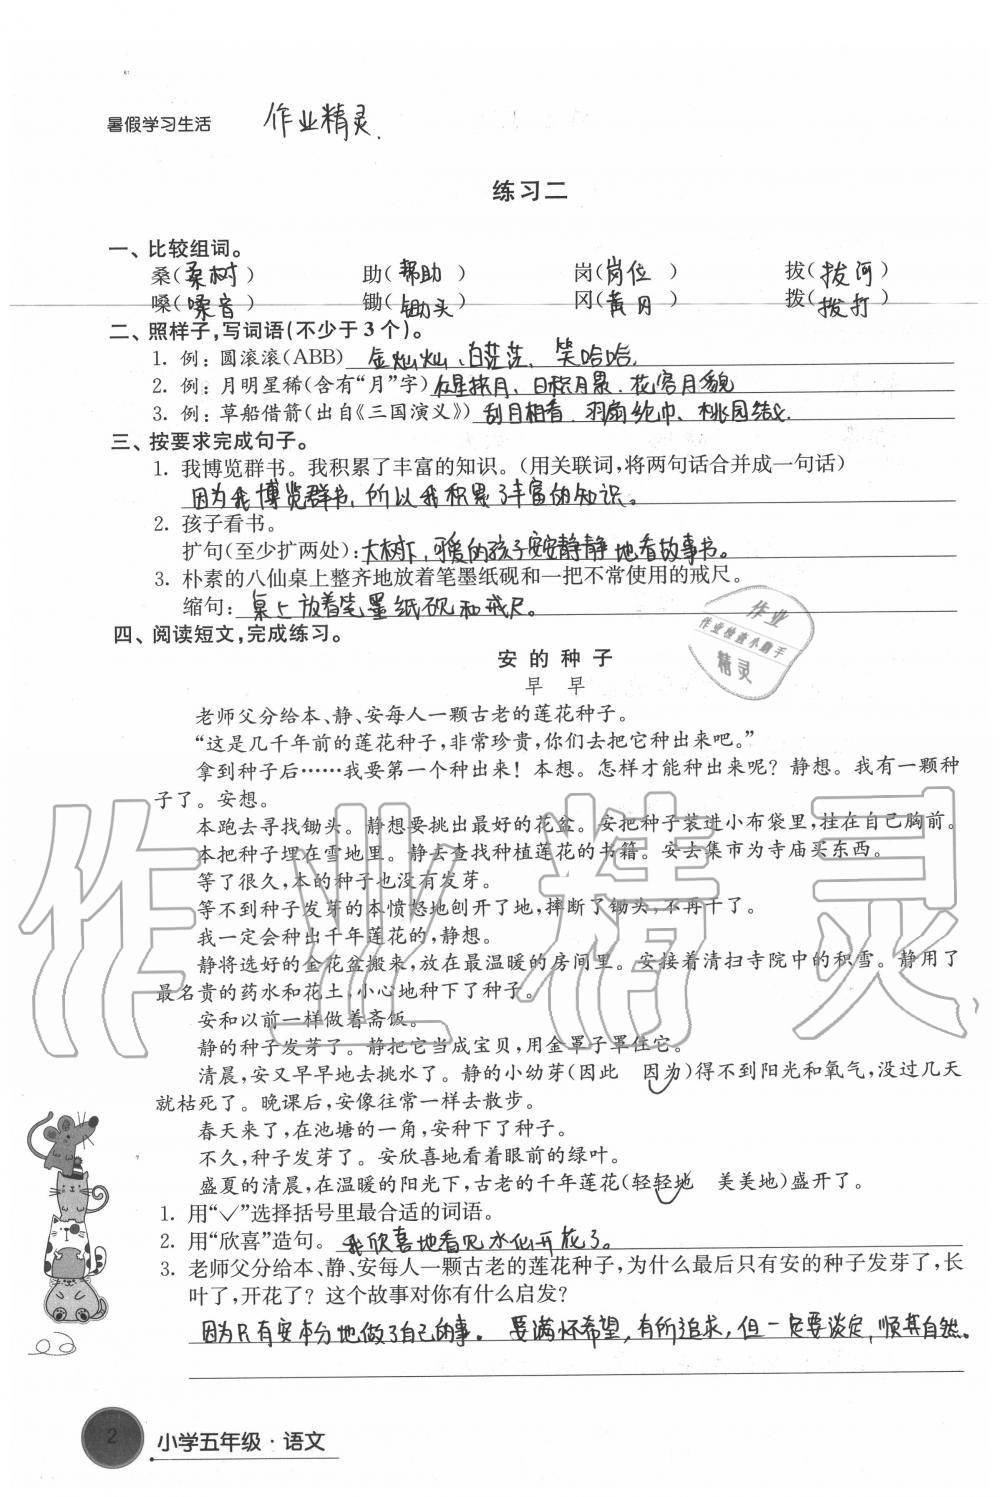 暑假学习生活 作业精灵.
练习二
一、比较组词。
桑(桑树) 助(帮助) 岗(岗位) 拔(拔河)
嗓(嗓音) 锄(锄头) 冈(黄冈) 拨(拨打)
二、照样子,写词语(不少于3个)。
1. 例:圆滚滚(ABB) 金灿灿、白茫茫、笑哈哈.
2. 例:月明星稀(含有“月”字) 众星捧月、日积月累.花容月貌
3. 例:草船借箭(出自《三国演义》) 刮目相看.羽扇纶巾、桃园结义.
三、按要求完成句子。
1. 我博览群书。我积累了丰富的知识。(用关联词,将两句话合并成一句话)
因为我博览群书,所以我积累了丰富的知识。
2. 孩子看书。
扩句(至少扩两处):大树下,可爱的孩子安安静静地看故事书。
3. 朴素的八仙桌上整齐地放着笔墨纸砚和一把不常使用的戒尺。
缩句:桌上放着笔墨纸砚和戒尺。
四、阅读短文,完成练习。
作业
作业检查小助手
精灵
安的种子
早 早
老师父分给本、静、安每人一颗古老的莲花种子。
“这是几千年前的莲花种子,非常珍贵,你们去把它种出来吧。”
拿到种子后……我要第一个种出来!本想。怎样才能种出来呢?静想。我有一颗种
子了。安想。
本跑去寻找锄头。静想要挑出最好的花盆。安把种子装进小布袋里,挂在自己胸前。
本把种子埋在雪地里。静去查找种植莲花的书籍。安去集市为寺庙买东西。
等了很久,本的种子也没有发芽。
等不到种子发芽的本愤怒地刨开了地,摔断了锄头,不再干了。
我一定会种出千年莲花的,静想。
静将选好的金花盆搬来,放在最温暖的房间里。安接着清扫寺院中的积雪。静用了
最名贵的药水和花土,小心地种下了种子。
安和以前一样做着斋饭。
静的种子发芽了。静把它当成宝贝,用金罩子罩住它。
清晨,安又早早地去挑水了。静的小幼芽(因此 因为)得不到阳光和氧气,没过几天
就枯死了。晚课后,安像往常一样去散步。
春天来了,在池塘的一角,安种下了种子。
不久,种子发芽了。安欣喜地看着眼前的绿叶。
盛夏的清晨,在温暖的阳光下,古老的千年莲花(轻轻地 美美地)盛开了。
1. 用“✓”选择括号里最合适的词语。
2. 用“欣喜”造句。我欣喜地看见水仙开花了。
3. 老师父分给本、静、安每人一颗古老的莲花种子,为什么最后只有安的种子发芽了,长
叶了,开花了?这个故事对你有什么启发?
因为只有安本分地做了自己的事。要满怀希望,有所追求,但一定要淡定,顺其自然。
2 小学五年级·语文
作业精灵